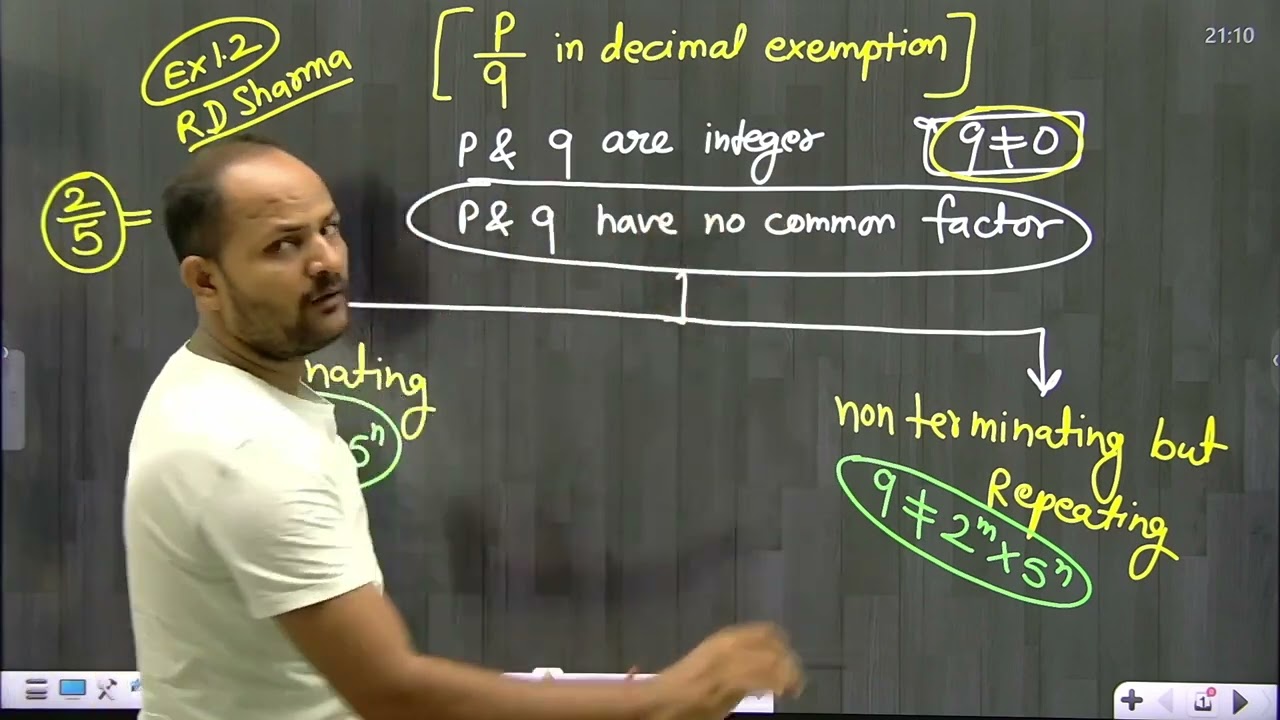 Ex 1.2
RD Sharma
[ P/q in decimal exemption ]
21:10
P & q are integer
q ≠ 0
2/5 =
P & q have no common factor
nating
5ⁿ
non terminating but
Repeating
q ≠ 2ᵐ × 5ⁿ
1